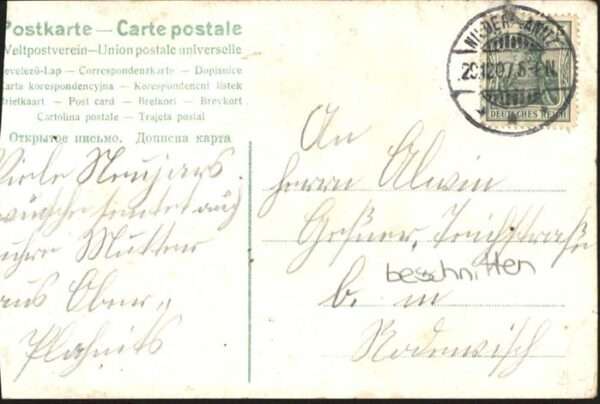 Postkarte — Carte postale
Weltpostverein — Union postale universelle
Levelező-Lap — Correspondenzkarte — Dopisnice
Karta korespondencyjna — Korespondenční lístek
Briefkaart — Post card — Brefkort — Brevkort
Cartolina postale — Tarjeta postal
Открытое письмо. Дописна карта
NIEDER
29.12.07.
DEUTSCHES REICH
Viele Neujars
wünsche sendet auch
uhre Mutter
aus Ober-
Plahnits
An
Herrn Alwin
Geßner, Teichstraße
beschnitten
b. m
Rodewisch